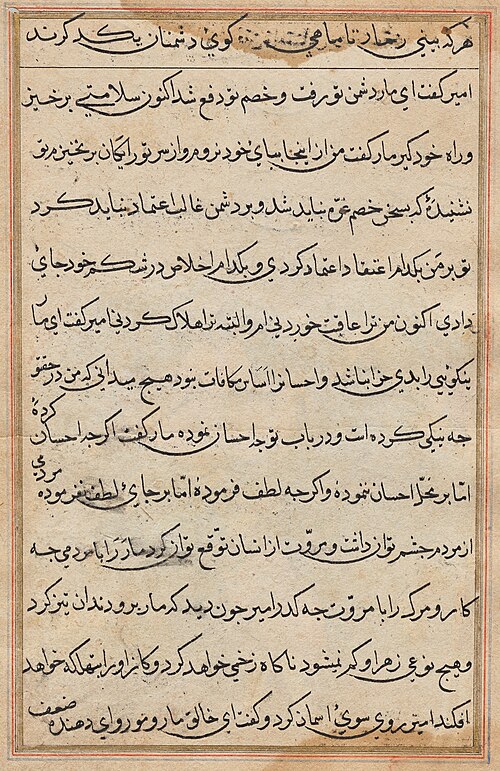 هرکه بینی رختار تا بماهی گوی دشمنان یکد کرند
امیر کفت ای مار دشمن تو رفت و خصم تو دفع شد اکنون سلامتی برخیز
و راه خود کیر مار کفت من از اینجا بپای خود نروم و از سر تو رایکان برنخیزم تو
نشنیدهٔ که بسخن خصم غرّه نباید شد و بر دشمن غالب اعتماد نباید کرد
تو بر من بکدام اعتقاد اعتماد کردی و بکدام اخلاص در شکم خود جای
دادی اکنون من ترا عاقبت خوردنی ام و البته ترا هلاک کردنی امیر کفت ای مار
نیکویی را بدی جزا نباشد و احسانرا اساس مکافات نبود هیچ میدانی که من در حق تو
چه نیکی کرده است و در باب تو چه احسان نموده مار کفت اکر چه احسان کردهٔ
امّا بر محل احسان ننمودهٔ و اکر چه لطف فرمودهٔ امّا بر جای لطف نفرموده مردمی
از مردم چشم توان داشت و مروّت از انسان توقع توان کرد مار را با مردمی چه
کار و مرک را با مروّت چه کدر امیر چون دید که مار برو دندان تیز کرد
و هیچ نوعی زهر او کم نمیشود ناکاه زخمی خواهد کرد و کار او را بتهلکه خواهد
افکند امیر روی سوی اسمان کرد و کفت ای خالق مار و مور و ای دهنده ضعف